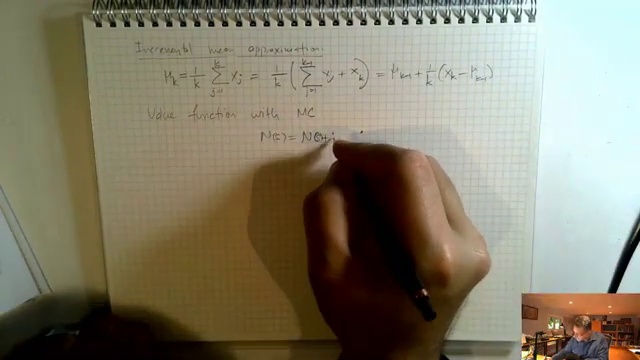 Incremental mean approximation:
μ_k = 1/k ∑_{j=1}^{k} x_j = 1/k ( ∑_{j=1}^{k-1} x_j + x_k ) = μ_{k-1} + 1/k (x_k − μ_{k-1})
Value function with MC
N(s) = N(s)+1